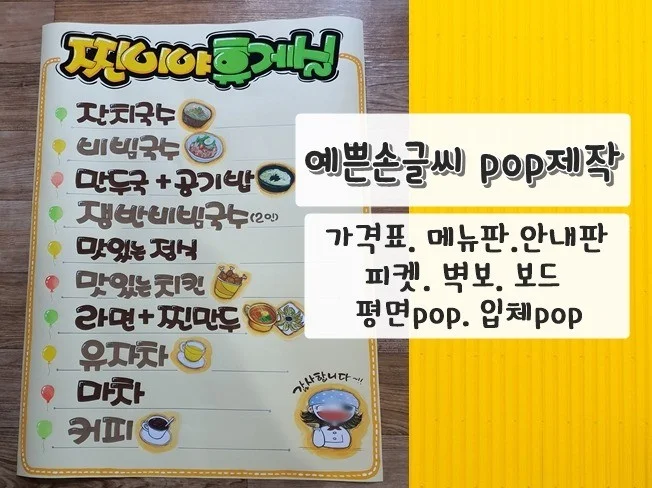 찐이야휴게실
잔치국수
비빔국수
만두국+공기밥
쟁반비빔국수(2인)
맛있는정식
맛있는치킨
라면+찐만두
유자차
마차
커피
감사합니다~!!
예쁜손글씨 pop제작
가격표. 메뉴판.안내판
피켓. 벽보. 보드
평면pop. 입체pop